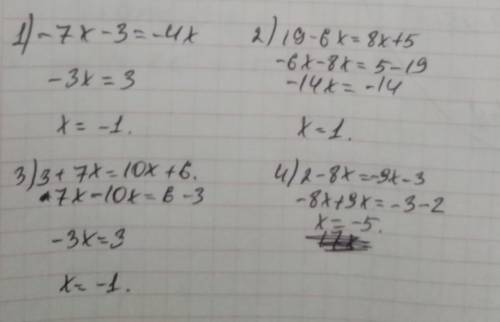 1) -7x-3=-4x
-3x=3
x=-1.
2) 19-6x=8x+5
-6x-8x=5-19
-14x=-14
x=1.
3) 3+7x=10x+6.
7x-10x=6-3
-3x=3
x=-1.
4) 2-8x=-9x-3
-8x+9x=-3-2
x=-5.